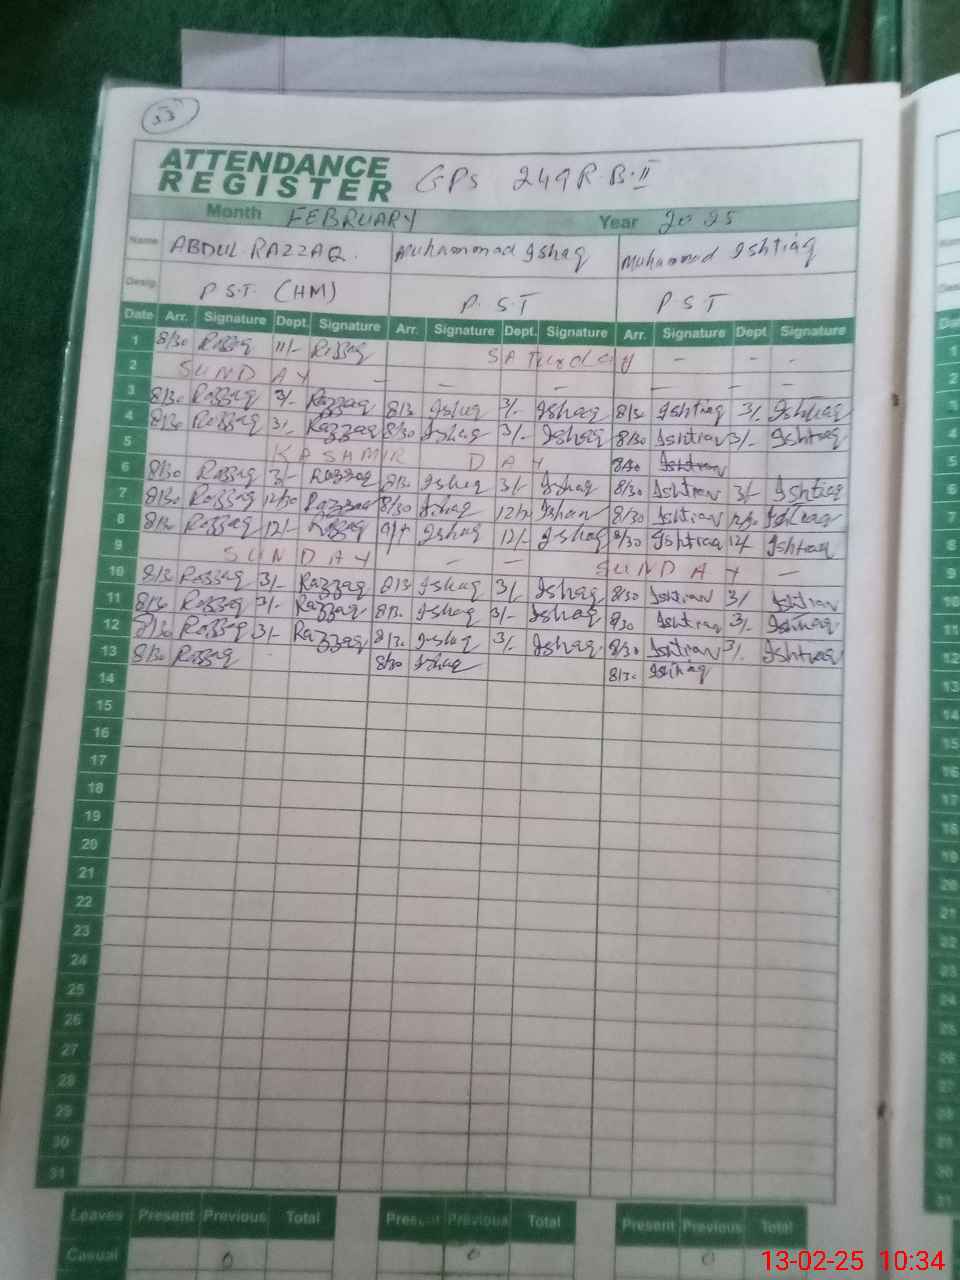 55
ATTENDANCE REGISTER GPS 249 R.B.II
Month FEBRUARY Year 2025
Name ABDUL RAZZAQ. Muhammad Ishaq Muhammad Ishtiaq
Desig. P.S.T. (HM) P.S.T P S T
Date Arr. Signature Dept. Signature Arr. Signature Dept. Signature Arr. Signature Dept. Signature
1 8/30 Razzaq 11/- Razzaq SATURDAY - - -
2 SUNDAY - - - - - -
3 8/30 Razzaq 3/- Razzaq 8/30 Ishaq 3/- Ishaq 8/30 Ishtiaq 3/- Ishtiaq
4 8/30 Razzaq 3/- Razzaq 8/30 Ishaq 3/- Ishaq 8/30 Ishtiaq 3/- Ishtiaq
5 KASHMIR DAY 8/30 Ishtiaq
6 8/30 Razzaq 3/- Razzaq 8/30 Ishaq 3/- Ishaq 8/30 Ishtiaq 3/- Ishtiaq
7 8/30 Razzaq 12/30 Razzaq 8/30 Ishaq Ishaq 8/30 Ishtiaq 12/30 Ishtiaq
8 8/30 Razzaq 12/- Razzaq Ishaq 12/- Ishaq 8/30 Ishtiaq 12/- Ishtiaq
9 SUNDAY - - SUNDAY -
10 8/30 Razzaq 3/- Razzaq 8/30 Ishaq 3/- Ishaq 8/30 Ishtiaq 3/- Ishtiaq
11 8/30 Razzaq 3/- Razzaq 8/30 Ishaq 3/- Ishaq 8/30 Ishtiaq 3/- Ishtiaq
12 8/30 Razzaq 3/- Razzaq 8/30 Ishaq 3/- Ishaq 8/30 Ishtiaq 3/- Ishtiaq
13 8/30 Razzaq 8/30 Ishaq 8/30 Ishtiaq
14
15
16
17
18
19
20
21
22
23
24
25
26
27
28
29
30
31
Leaves Present Previous Total Present Previous Total Present Previous Total
Casual 0 0 0
13-02-25 10:34